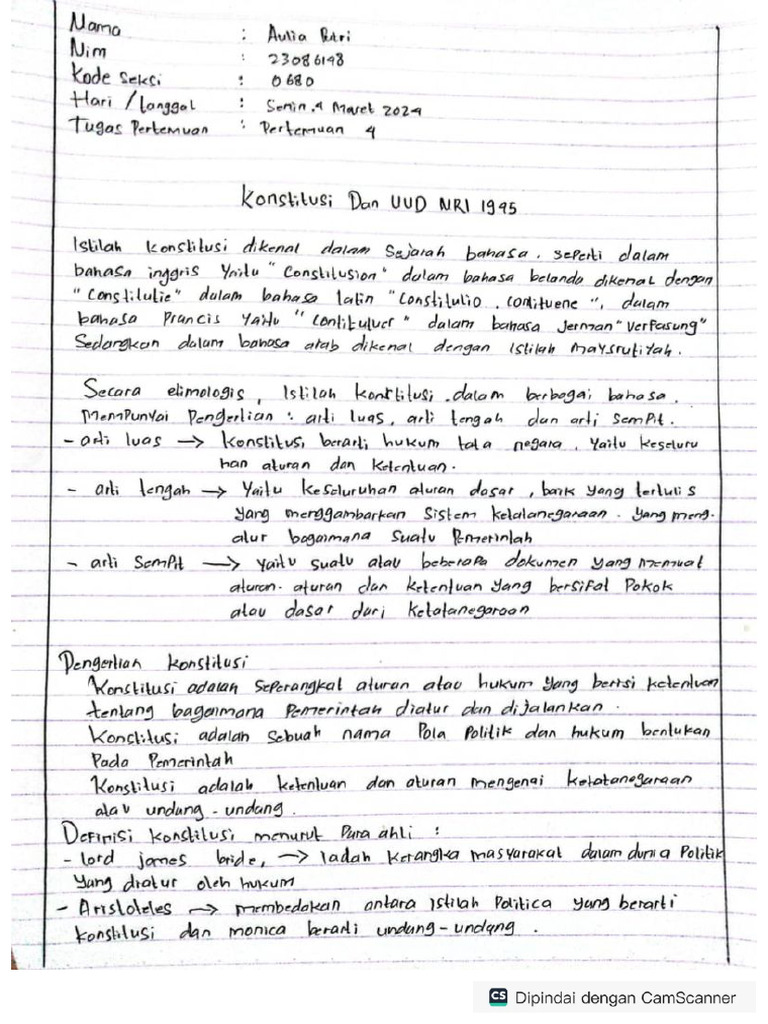 Nama : Aulia Putri
Nim : 23086148
Kode Seksi : 0680
Hari / tanggal : Senin, 4 Maret 2024
Tugas Pertemuan : Pertemuan 4
Konstitusi Dan UUD NRI 1945
Istilah konstitusi dikenal dalam Sejarah bahasa, seperti dalam
bahasa inggris Yaitu "Constitusion" dalam bahasa belanda dikenal dengan
"Constitutie" dalam bahasa latin "Constitutio, contituene", dalam
bahasa Prancis Yaitu "Contituluer" dalam bahasa Jerman "Verfasung"
Sedangkan dalam bahasa arab dikenal dengan Istilah maysrutiyah.
Secara etimologis, Istilah kontitusi dalam berbagai bahasa,
memPunyai Pengertian : arti luas, arti tengah dan arti SemPit.
- arti luas → konstitusi berarti hukum tata negara, Yaitu keseluru
han aturan dan Ketentuan.
- arti tengah → Yaitu keseluruhan aturan dasar, baik yang tertulis
yang menggambarkan Sistem ketatanegaraan. Yang meng-
atur bagaimana suatu Pemerintah
- arti SemPit → Yaitu suatu atau beberapa dokumen yang memuat
aturan-aturan dan ketentuan yang bersifat Pokok
atau dasar dari ketatanegaraan
Pengertian konstitusi
Konstitusi adalah seperangkat aturan atau hukum yang berisi ketentuan
tentang bagaimana Pemerintah diatur dan dijalankan.
Konstitusi adalah sebuah nama Pola Politik dan hukum bentukan
Pada Pemerintah
Konstitusi adalah ketentuan dan aturan mengenai ketatanegaraan
atau undang-undang.
Definisi konstitusi menurut Para ahli :
- lord james bride, → Iadah kerangka masyarakat dalam dunia Politik
Yang diatur oleh hukum
- Aristoteles → membedakan antara Istilah Politica yang berarti
konstitusi dan monica berarti undang-undang.
CS Dipindai dengan CamScanner